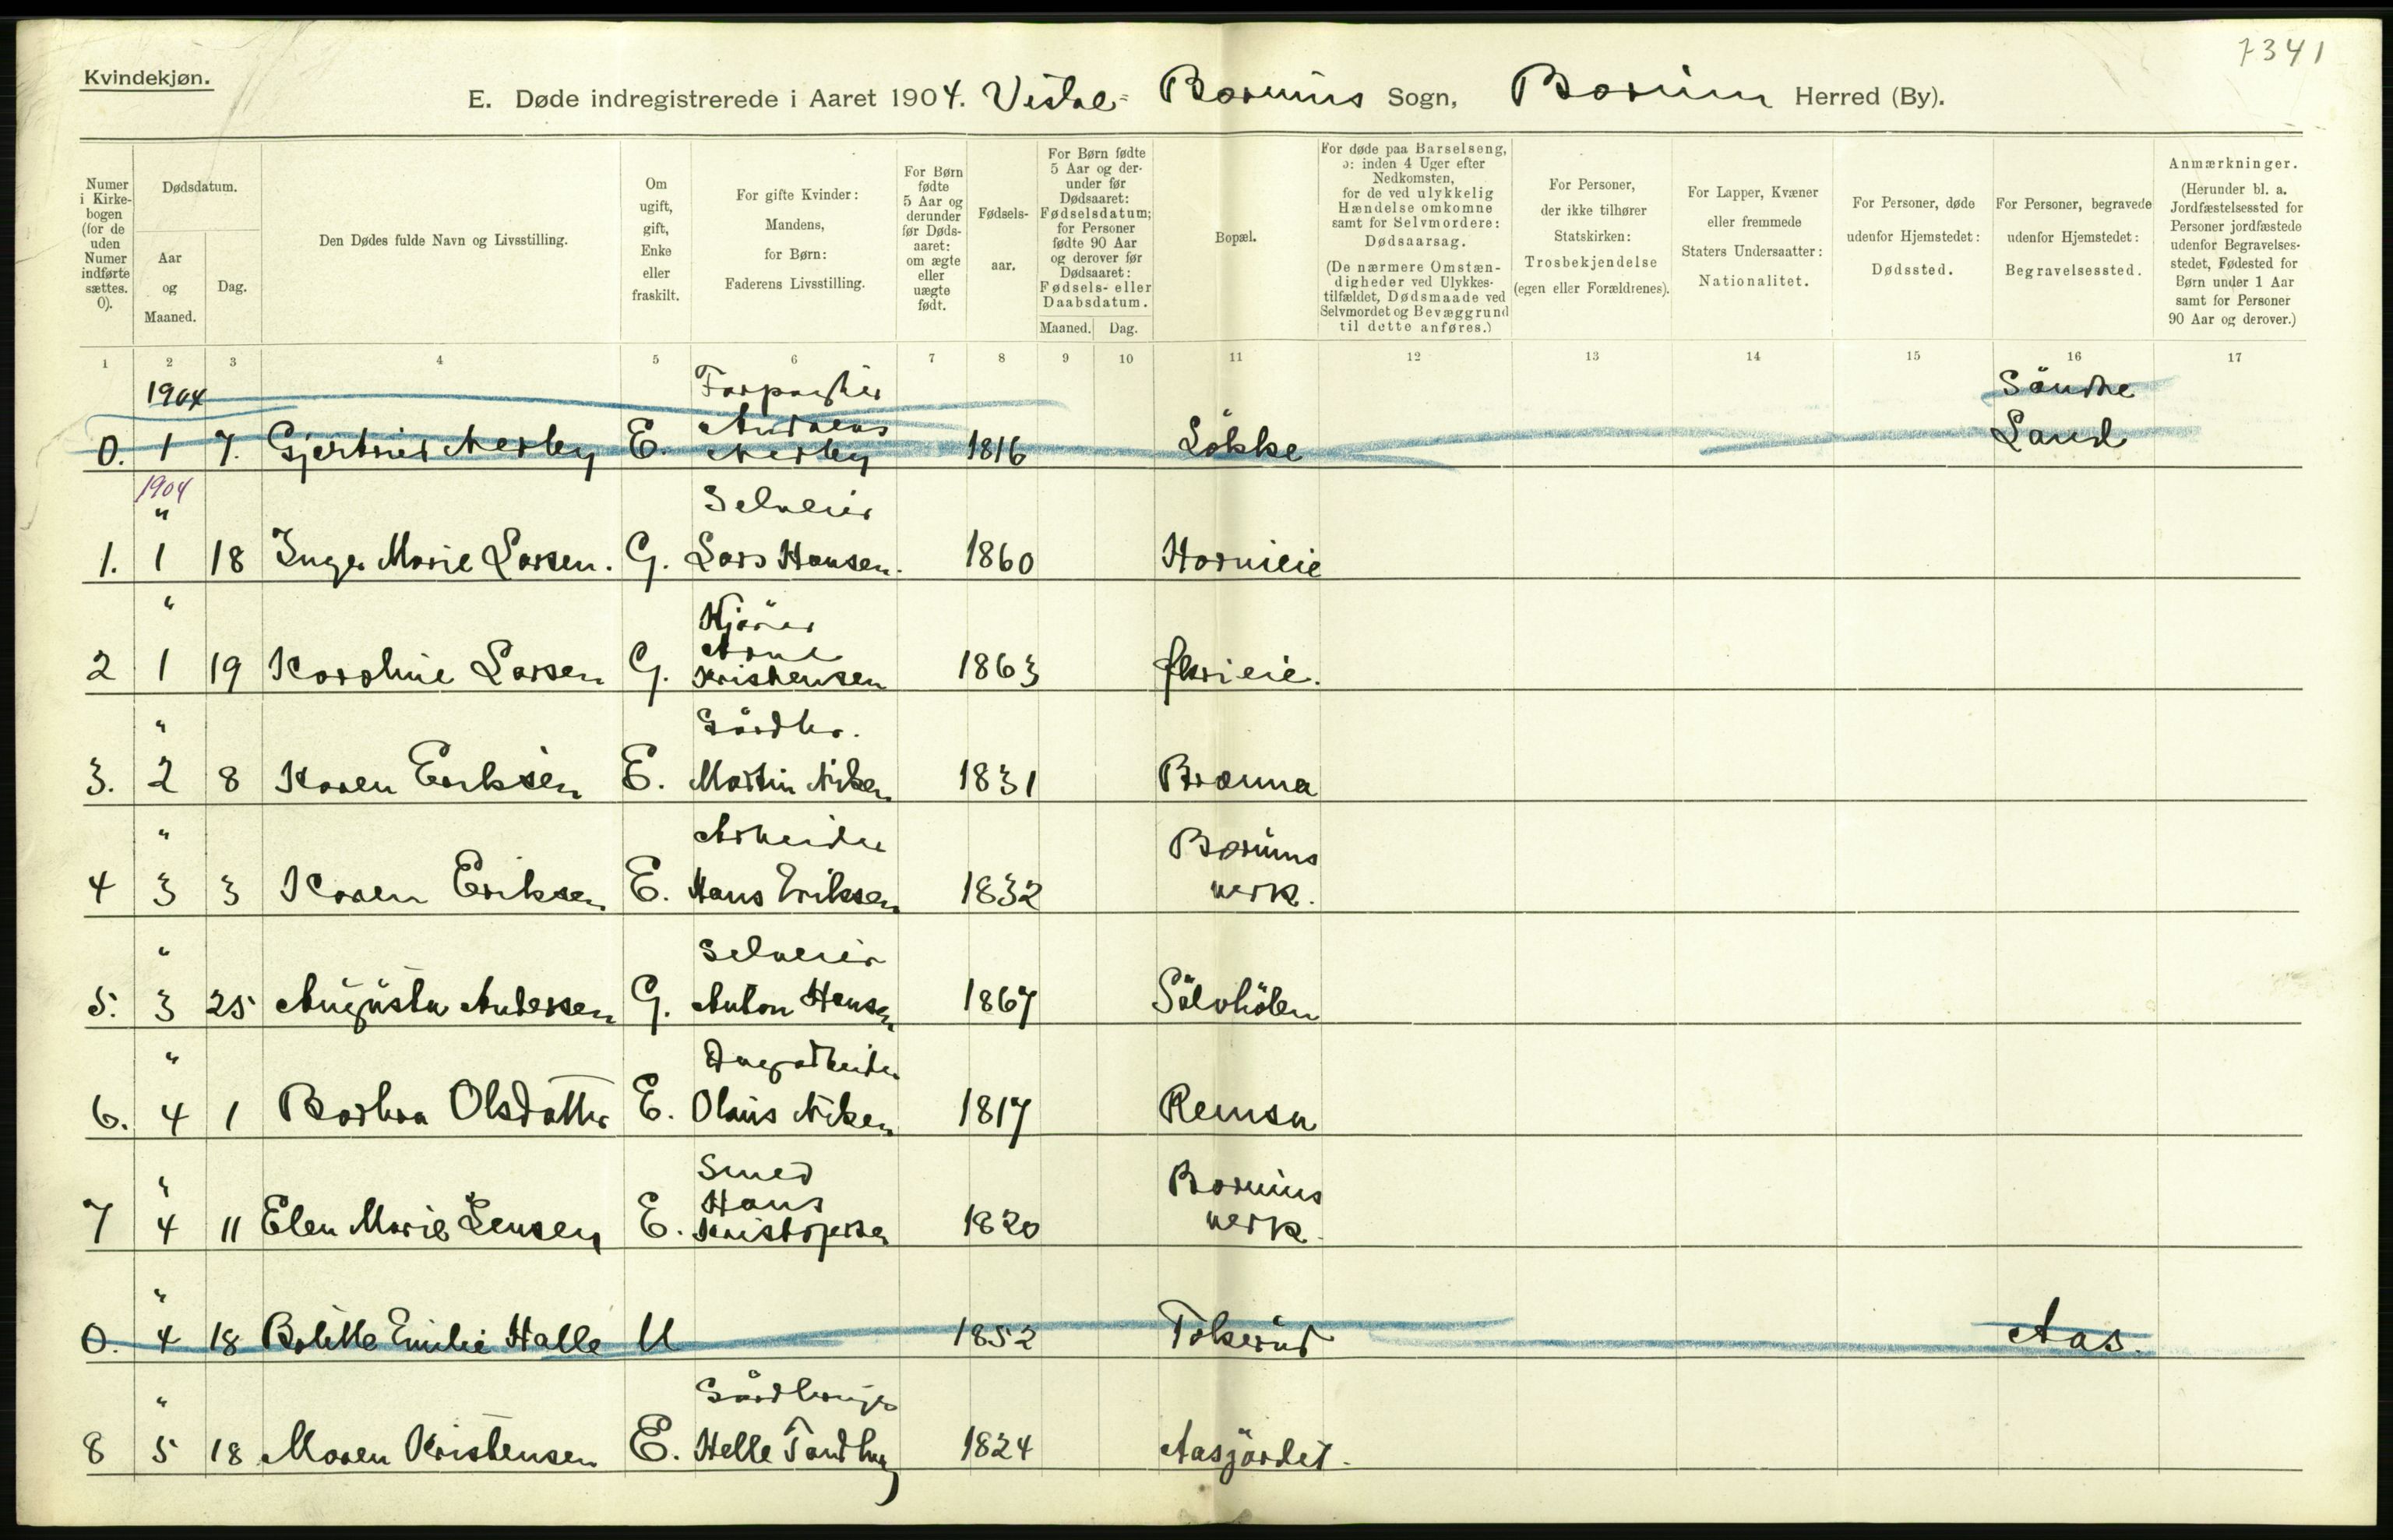 7341
Kvindekjøn.
E. Døde indregistrerede i Aaret 1904. Vestre Bærums Sogn, Bærum Herred (By).
Numer i Kirke-bogen (for de uden Numer indførte sættes. 0).
Dødsdatum.
Aar og Maaned.
Dag.
Den Dødes fulde Navn og Livsstilling.
Om ugift, gift, Enke eller fraskilt.
For gifte Kvinder: Mandens, for Børn: Faderens Livsstilling.
For Børn fødte 5 Aar og derunder før Døds-aaret: om ægte eller uægte født.
Fødsels-aar.
For Børn fødte 5 Aar og der-under før Dødsaaret: Fødselsdatum; for Personer fødte 90 Aar og derover før Dødsaaret: Fødsels- eller Daabsdatum.
Maaned. Dag.
Bopæl.
For døde paa Barselseng, ɔ: inden 4 Uger efter Nedkomsten, for de ved ulykkelig Hændelse omkomne samt for Selvmordere: Dødsaarsag.
(De nærmere Omstæn-digheder ved Ulykkes-tilfældet, Dødsmaade ved Selvmordet og Bevæggrund til dette anføres.)
For Personer, der ikke tilhører Statskirken: Trosbekjendelse (egen eller Forældrenes).
For Lapper, Kvæner eller fremmede Staters Undersaatter: Nationalitet.
For Personer, døde udenfor Hjemstedet: Dødssted.
For Personer, begravede udenfor Hjemstedet: Begravelsessted.
Anmærkninger.
(Herunder bl. a. Jordfæstelsessted for Personer jordfæstede udenfor Begravelses-stedet, Fødested for Børn under 1 Aar samt for Personer 90 Aar og derover.)
1 2 3 4 5 6 7 8 9 10 11 12 13 14 15 16 17
1904 Forpagter Søndre
0. 1 7. Gjertrud Nerby E. Andreas Nerby 1816 Løkke Land
1904
" Selveier
1. 1 18 Inga Marie Larsen. G. Lars Hansen. 1860 Hornieie
" Kjører
Arne
2 1 19 Karoline Larsen G. Kristensen 1863
" Gårdbr.
3. 2 8 Karen Eriksen E. Martin 1831 Brænna
" Arbeider Bærums
4 3 3 Karen Eriksen E. Hans Eriksen 1832 verk.
" Selveier
5. 3 25 Augusta Andersen G. Anton Hansen 1867 Sølvhølen
" Dagarbeider
6. 4 1 Barbra Olsdatter E. Olaus 1817 Remsa
" Smed Bærums
Hans
7 4 11 Elen Marie Jensen E. Kristofersen 1820 verk.
"
0. 4 18 Bolette Emilie Halle U 1852 Tokerud Aas.
" Gårdbruger
8 5 18 Maren Kristensen E. Helle Tandberg 1824 Aasjordet.